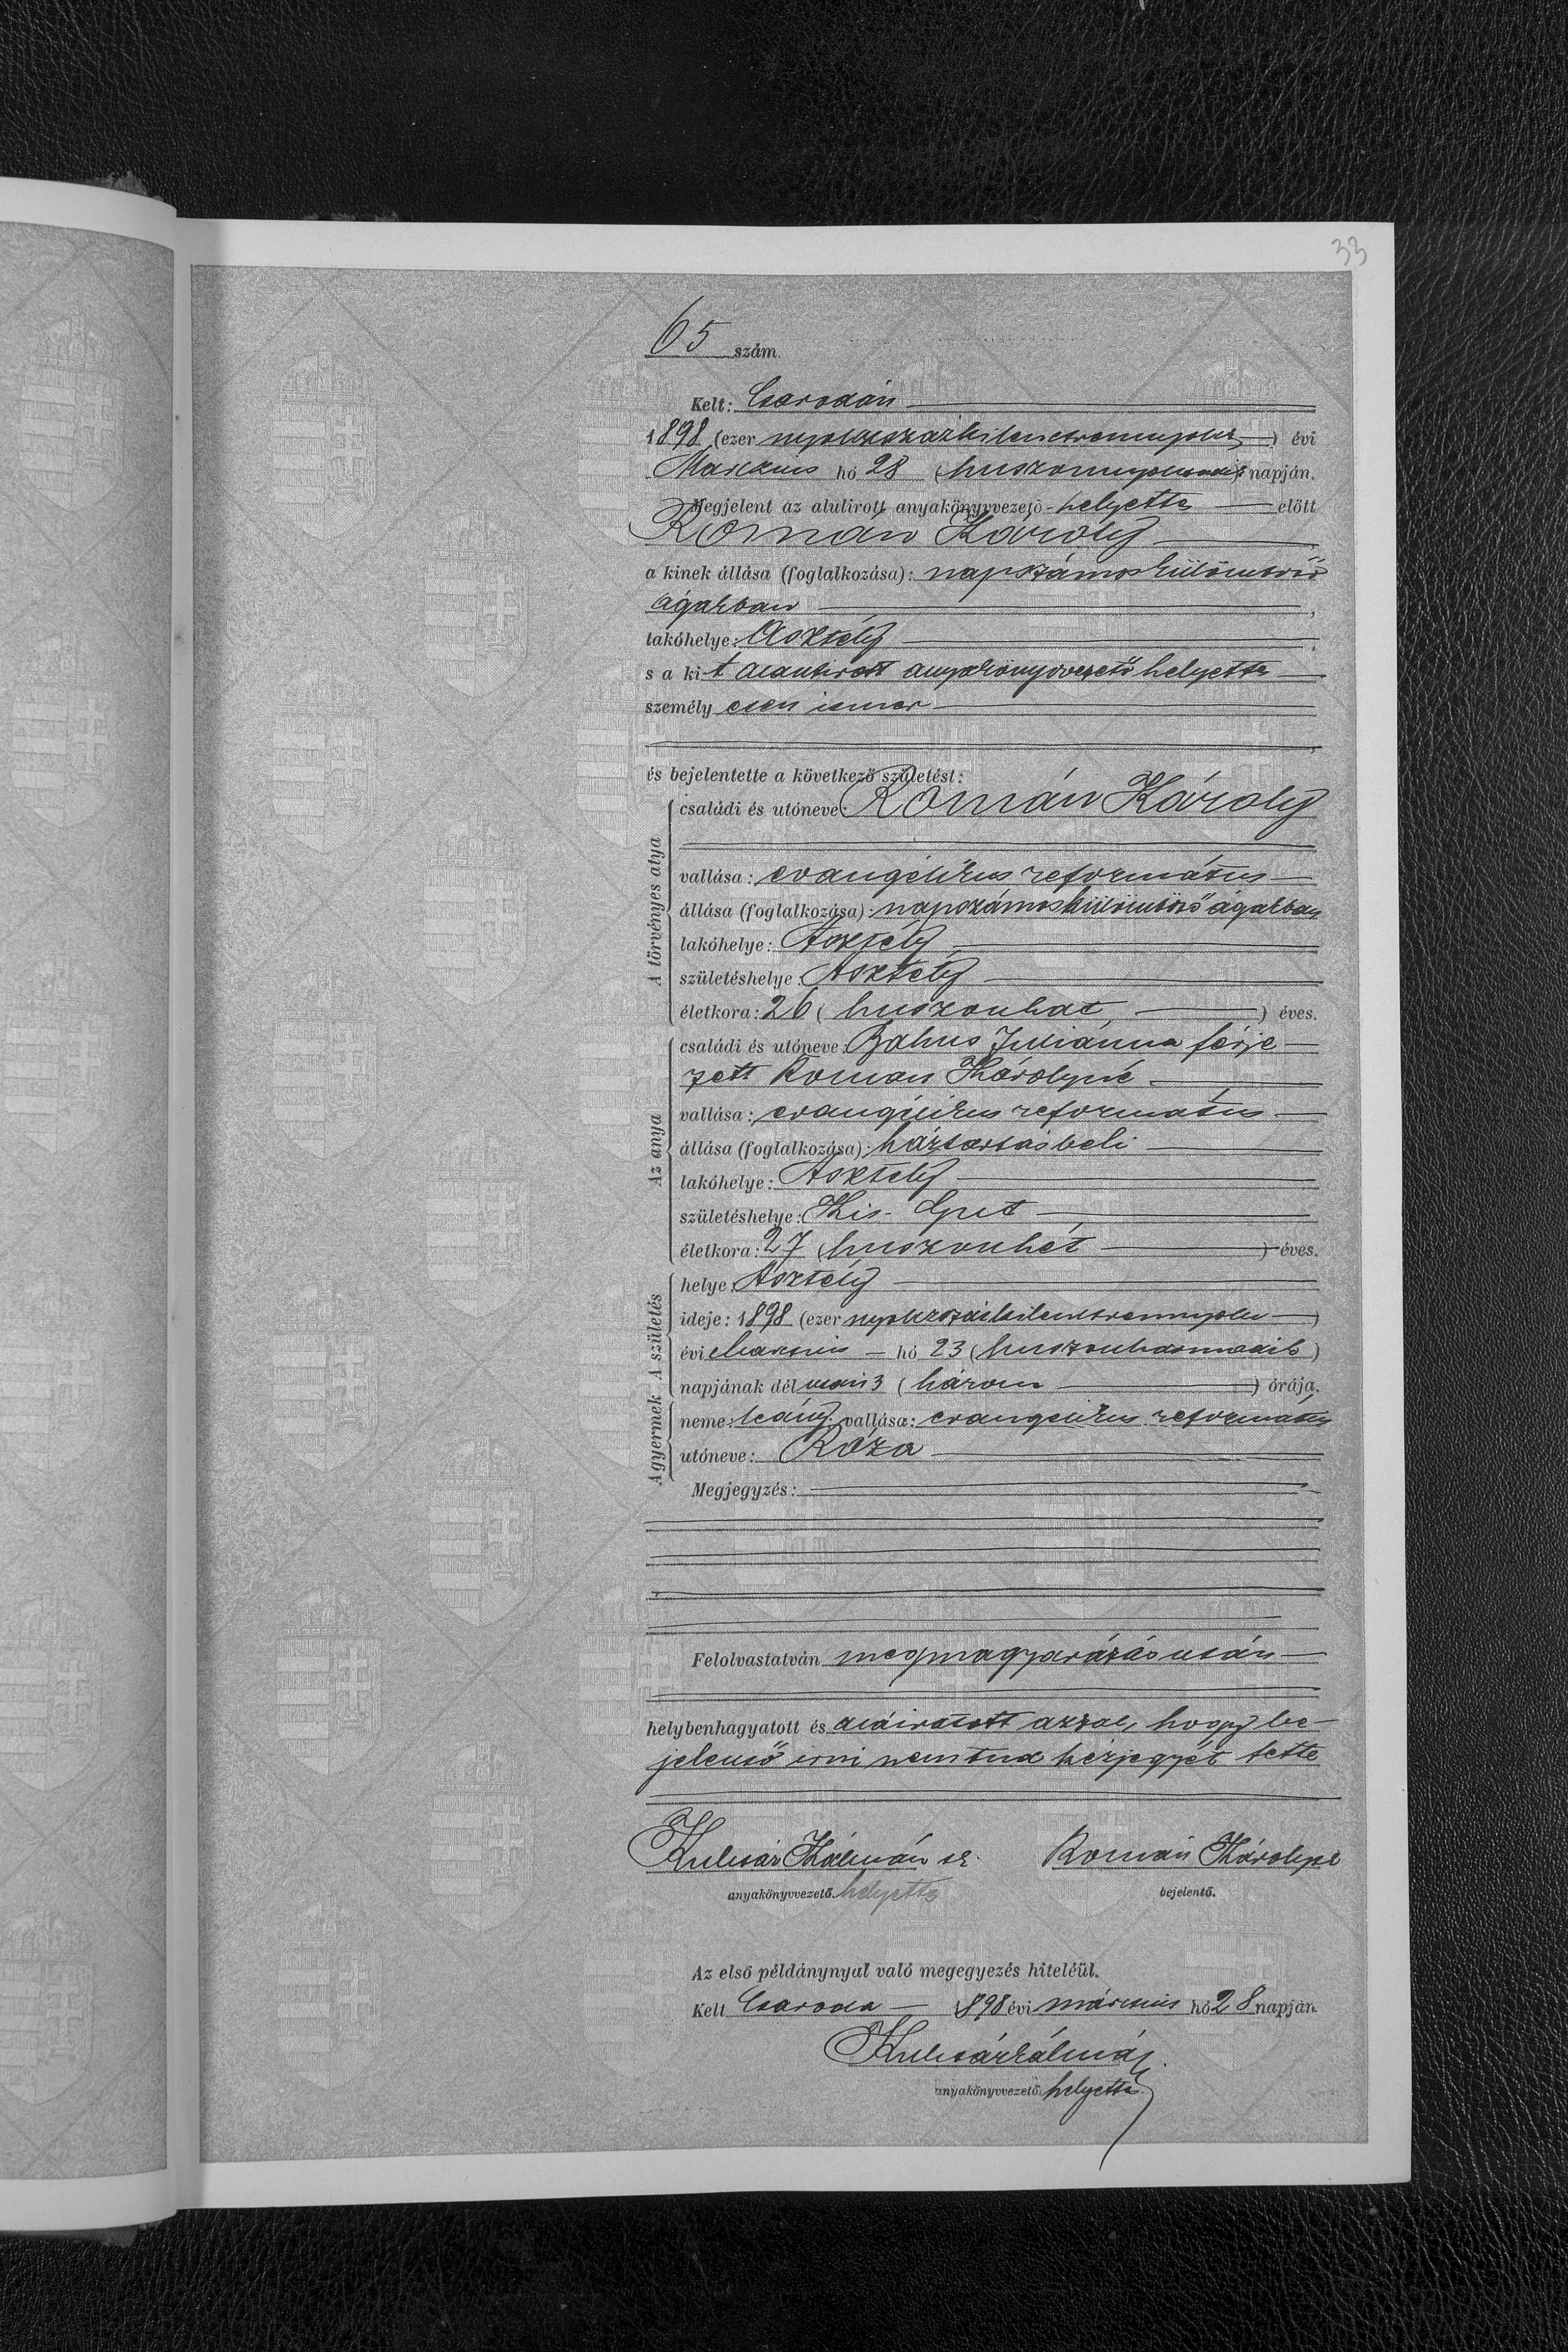 33
65 szám.
Kelt: Csarodán
1898 (ezer nyolczszázkilenczvennyolcz) évi
Marczius hó 28 (huszonnyolczadik) napján.
Megjelent az alulirott anyakönyvvezető-helyettes előtt
Román Károly
a kinek állása (foglalkozása): napszámos különböző
ágazban
lakóhelye: Asztély
s a kit alantirott anyakönyvvezető helyettes
személyesen ismer
és bejelentette a következő születést:
A törvényes atya
családi és utóneve: Román Károly
vallása: evangélikus református
állása (foglalkozása): napszámos különböző ágakban
lakóhelye: Asztély
születéshelye: Asztély
életkora: 26 (huszonhat) éves.
Az anya
családi és utóneve: Juliánna férje-
zett Roman Károlyné
vallása: evangélikus református
állása (foglalkozása): háztartásbeli
lakóhelye: Asztély
születéshelye: Kis-
életkora: 27 (huszonhét) éves.
A születés
helye: Asztély
ideje: 1898 (ezer nyolczszázkilenczvennyolcz)
évi Marczius hó 23 (huszonharmadik)
napjának dél után 3 (három) órája.
A gyermek
neme: leány. vallása: evangelikus református
utóneve: Róza
Megjegyzés:
Felolvastatván megmagyarázás után
helybenhagyatott és aláiratott azzal, hogy be-
jelentő irni nem tud kézjegyét tette
Kulcsár Kálmán sk. Román Károlyné
anyakönyvvezető. helyettes bejelentő.
Az első példánynyal való megegyezés hiteléül.
Kelt Csaroda 1898 évi márczius hó 28 napján
Kulcsár Kálmán
anyakönyvvezető. helyettes.